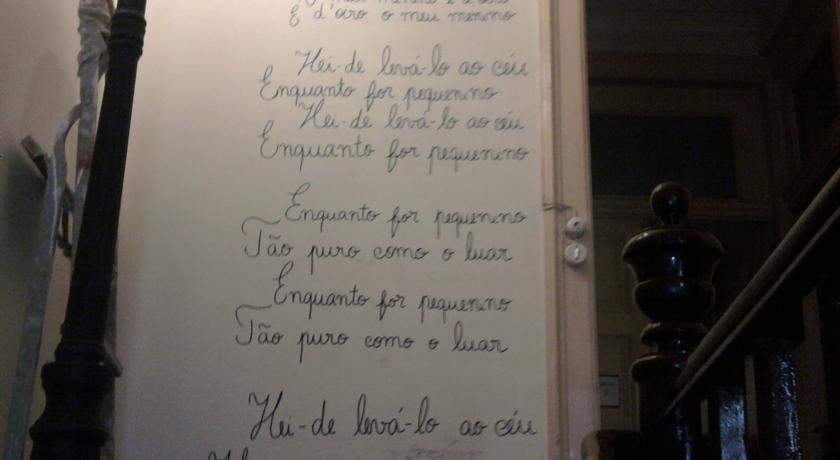 menino é d'oiro
É d'oiro o meu menino
Hei-de levá-lo ao céu
Enquanto for pequenino
Hei-de levá-lo ao céu
Enquanto for pequenino
Enquanto for pequenino
Tão puro como o luar
Enquanto for pequenino
Tão puro como o luar
Hei-de levá-lo ao céu